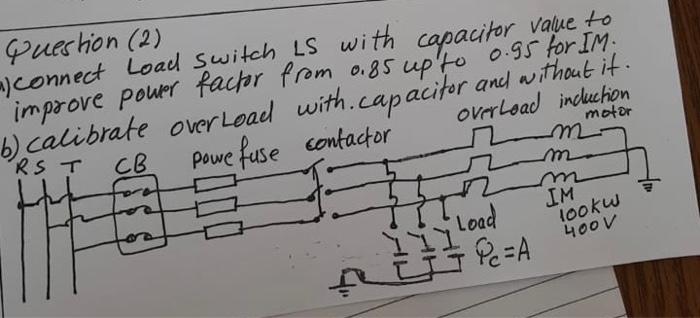 Question (2)
a) connect Load switch LS with capacitor value to
improve power factor from 0.85 up to 0.95 for IM.
b) calibrate overLoad with.capacitor and without it.
R S T CB powe fuse contactor overLoad induction
motor
IM
100kw
400V
Load
Qc=A